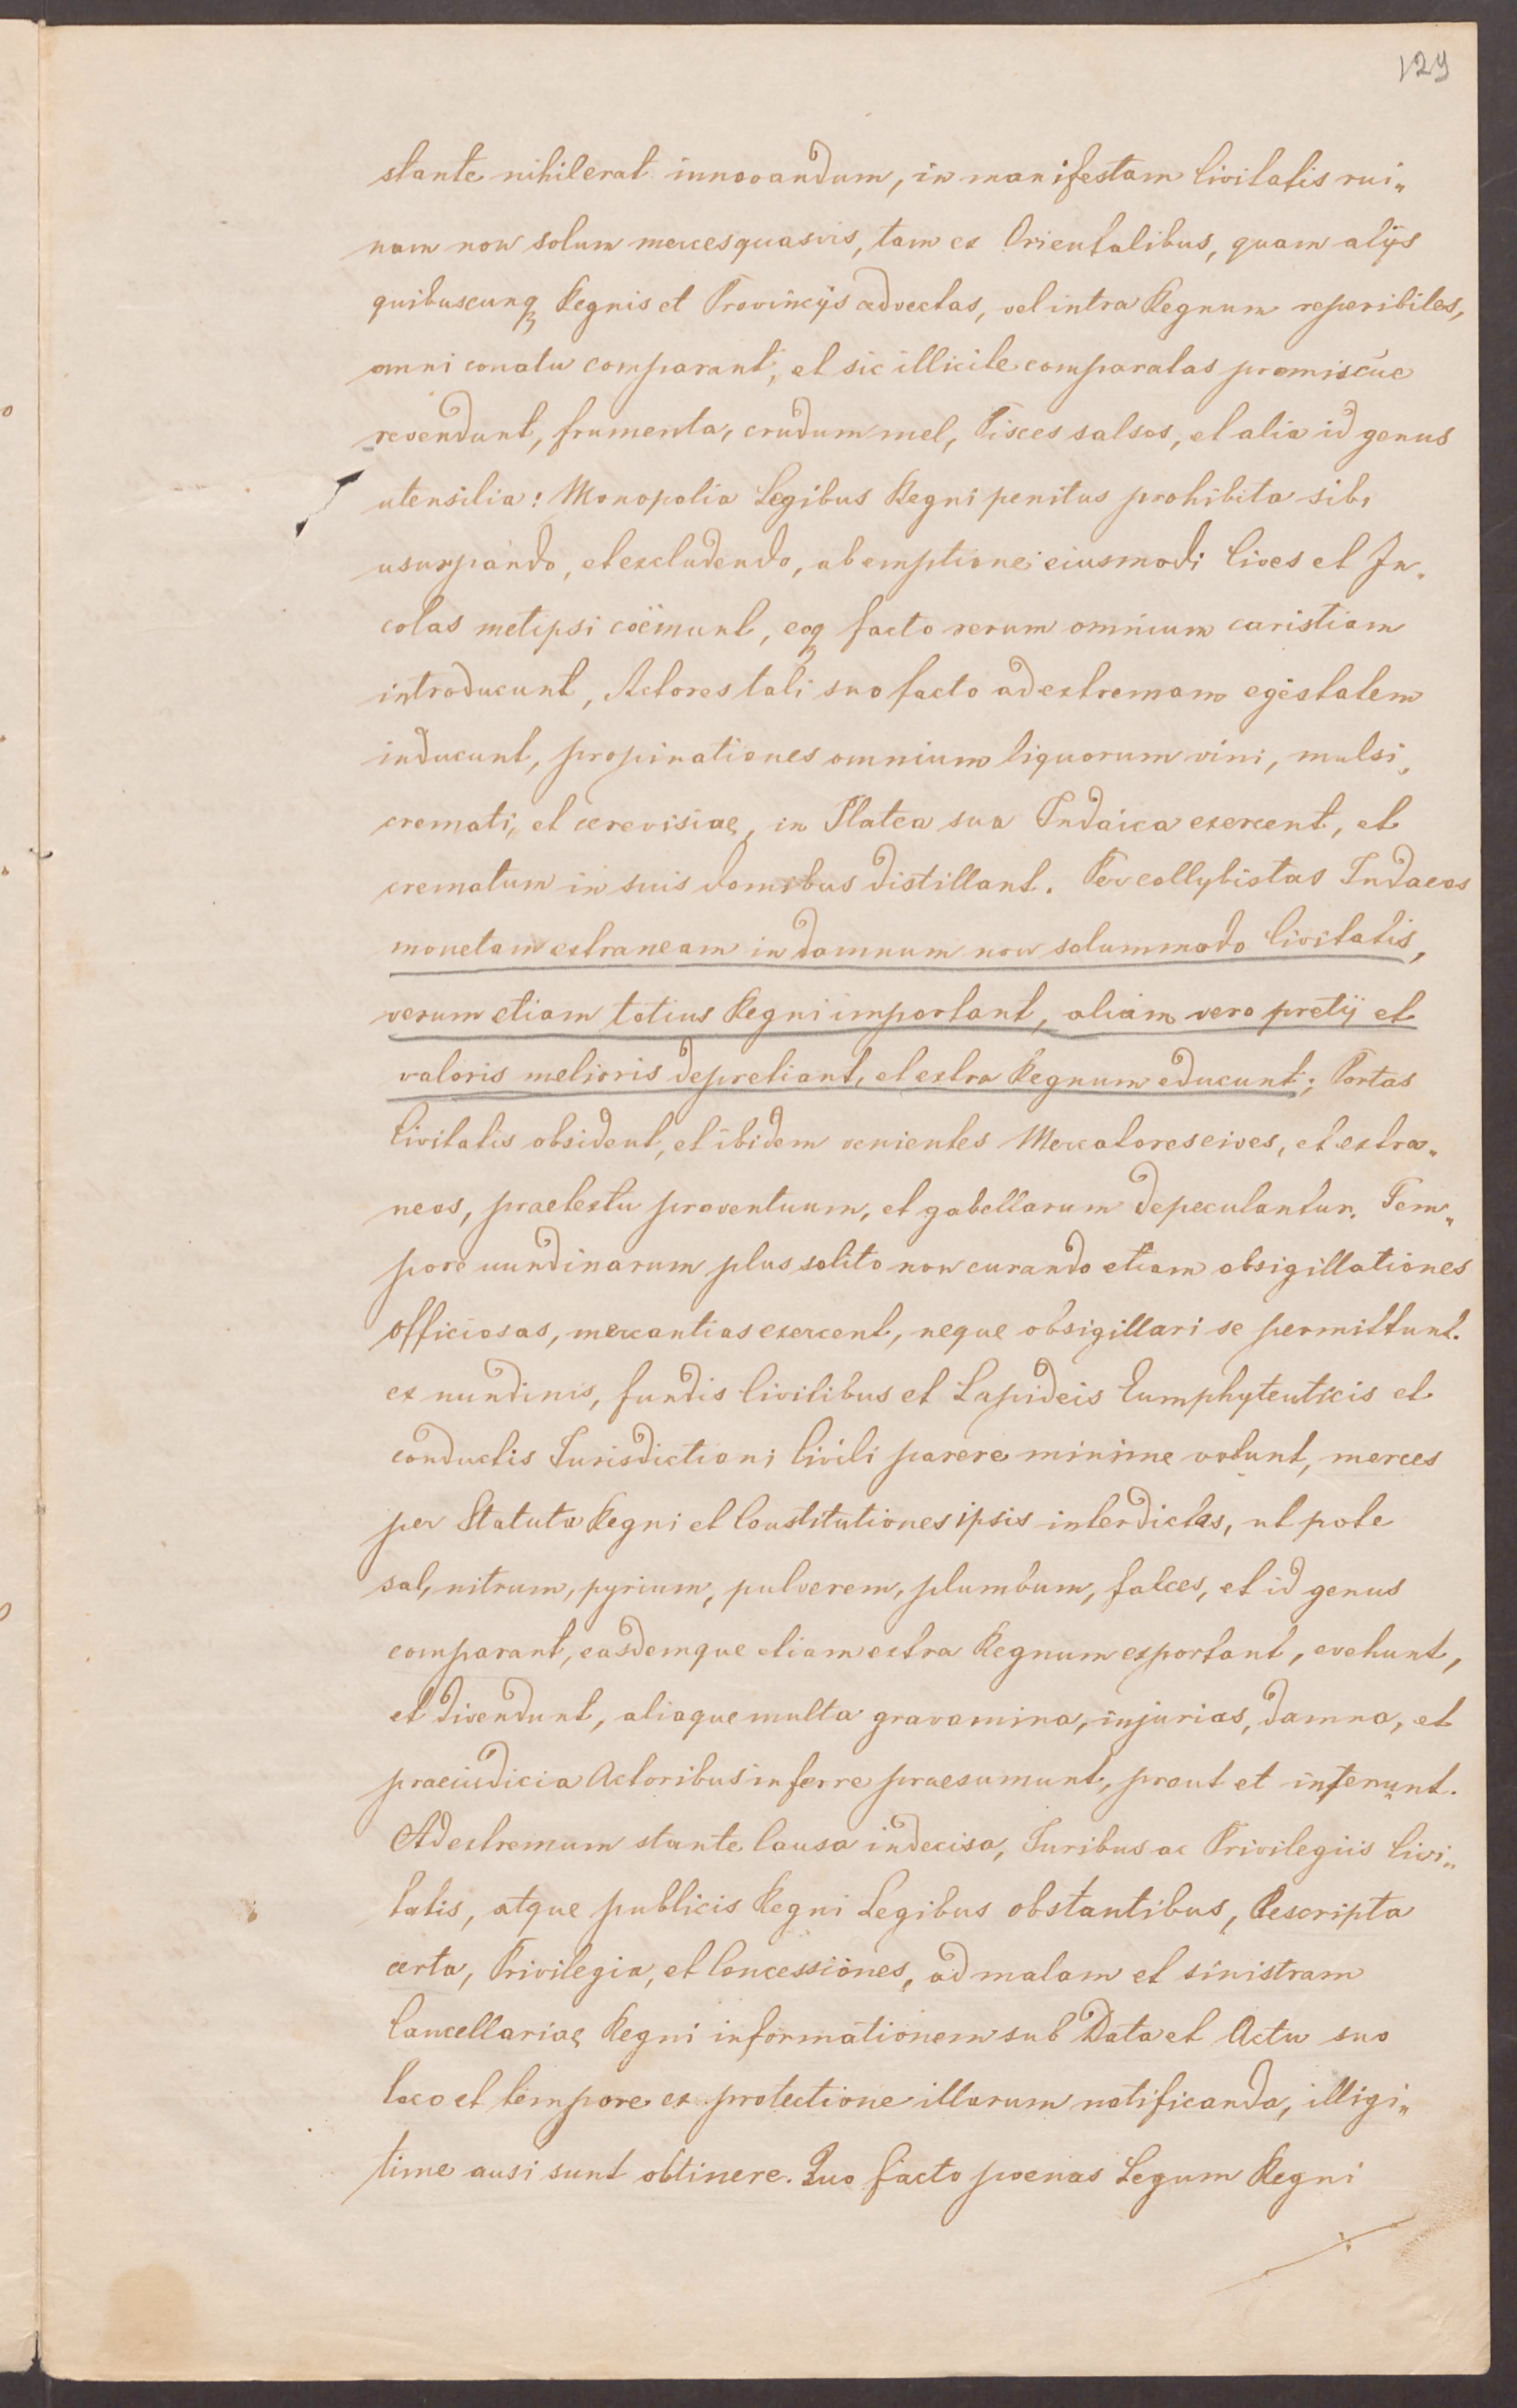 129
stante nihil erat innovandum, in manifestam Civitatis rui„
nam non solum merces quasvis, tam ex Orientalibus, quam alijs
quibuscunqꝫ Regnis et Provincijs advectas, vel intra Regnum reperibiles,
omni conatu comparant, et sic illicite comparatas promiscue
revendunt, frumenta, crudum mel, Pisces salsos, et alia id genus
utensilia: Monopolia Legibus Regni penitus prohibita sibi
usurpando, et excludendo, ab emptione eiusmodi Cives et In„
colas metipsi coëmunt, eoqꝫ facto rerum omnium caristiam
introducunt, Actores tali suo facto ad extremam egestatem
inducunt, propinationes omnium liquorum vini, mulsi,
cremati, et cerevisiae, in Platea sua Judaica exercent, et
crematum in suis domibus distillant. Per collybistas Judaeos
monetam extraneam in damnum non solummodo Civitatis,
verum etiam totius Regni important, aliam vero pretij et
valoris melioris depretiant, et extra Regnum educunt; Portas
Civitatis obsident, et ibidem venientes Mercatores cives, et extra„
neos, praetextu proventuum, et gabellarum depeculantur. Tem„
pore nundinarum plus solito non curando etiam obsigillationes
officiosas, mercantias exercent, neque obsigillari se permittunt.
ex nundinis, fundis Civilibus et Lapideis Eumphyteuticis et
conductis Jurisdictioni Civili parere minime volunt, merces
per Statuta Regni et Constitutiones ipsis interdictas, ut pote
sal, nitrum, pyrium, pulverem, plumbum, falces, et id genus
comparant, easdemque etiam extra Regnum exportant, evehunt,
et divendunt, aliaque multa gravamina, injurias, damna, et
praeiudicia Actoribus inferre praesumunt, prout et inferunt.
Ad extremum stante Causa indecisa, Juribus ac Privilegiis Civi„
tatis, atque publicis Regni Legibus obstantibus, Rescripta
certa, Privilegia, et Concessiones, ad malam et sinistram
Cancellariae Regni informationem sub Data et Actu suo
loco et tempore ex protectione illarum notificanda, illigi„
time ausi sunt obtinere. Quo facto poenas Legum Regni